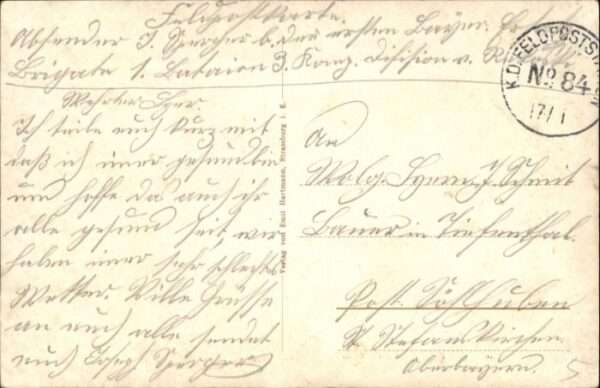 Feldpostkarte.
Absender J. Sperger b. der ersten Bayer. Ersatz
Brigate 1. Bataion 3. Komp. Division v.
K.D. FELDPOSTSTATION
No 84
17/1
Mehrter Herr.
Ich teile euch kurz mit
daß ich imer gesund bin
und hoffe das auch ihr
alle gesund seit, wir
haben imer sehr schlechts
Wetter. Ville Grüsse
an euch alle sendet
euch Joseph Sperger
Verlag von Emil Hartmann, Strassburg i. E.
An
Wolg. Herrn J. Schmit
Bauer in Tiefenthal.
Post. Söllhuben
St. Stefanskirchen
Oberbayern.
5